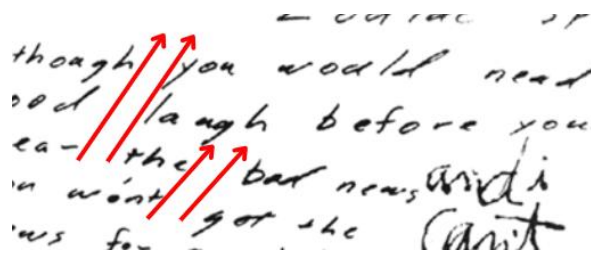 Zodiac sp
though you would nead
ood laugh before you
ea- the bad news and i
u won't get the Can't
ews for